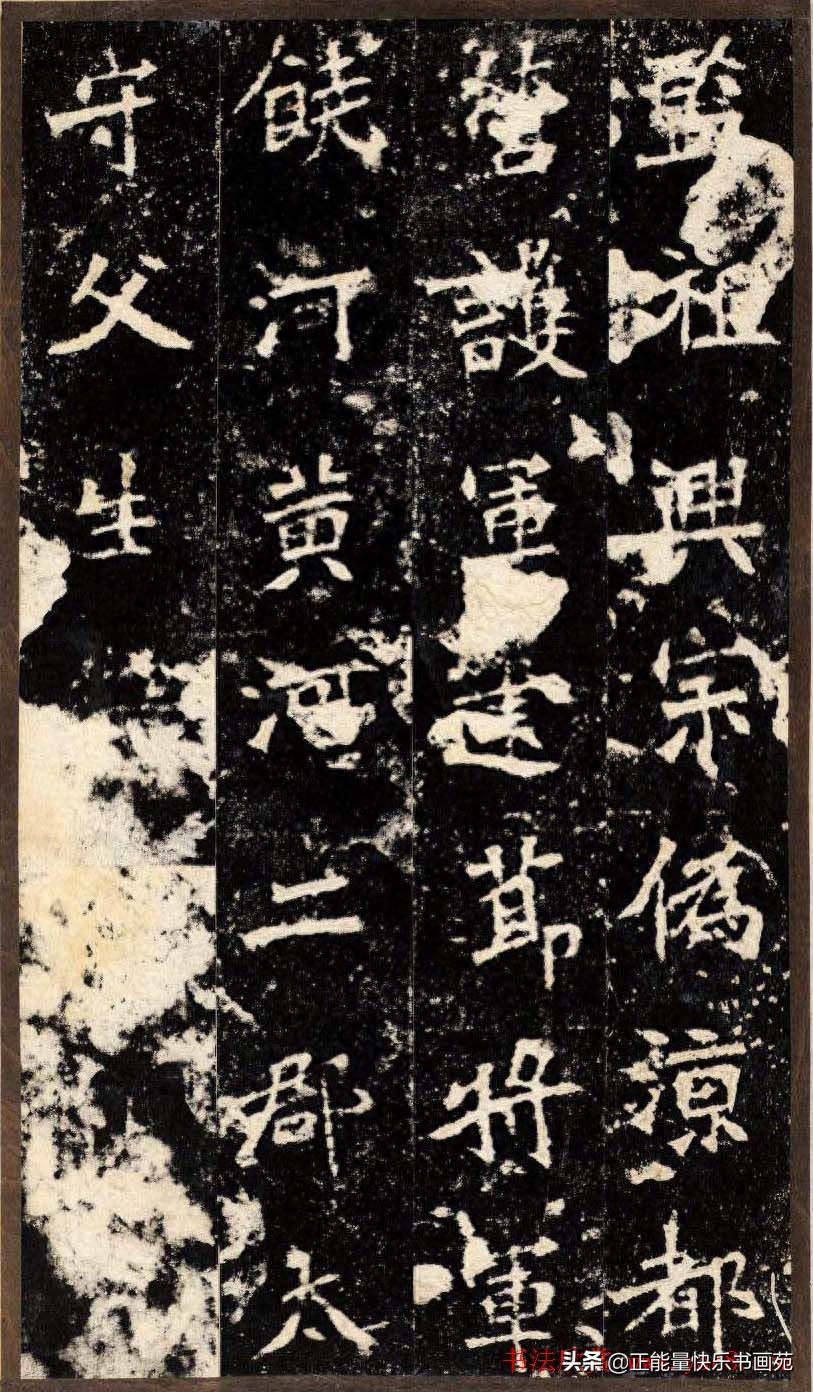 監祖興宗偽涼都
營護軍建節將軍
饒河黃河二郡太
守父生
头条 @正能量快乐书画苑